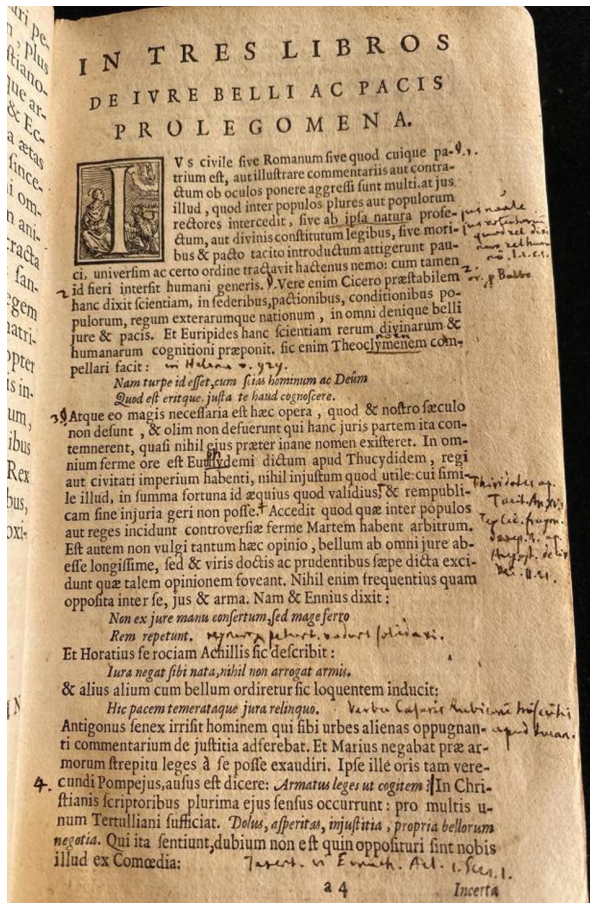 IN TRES LIBROS
DE IVRE BELLI AC PACIS
PROLEGOMENA.
IVs civile ſive Romanum ſive quod cuique pa-
trium eſt, aut illuſtrare commentariis aut contra-
ctum ob oculos ponere aggreſſi ſunt multi. at jus
illud, quod inter populos plures aut populorum
rectores intercedit, ſive ab ipſa natura profe-
ctum, aut divinis conſtitutum legibus, ſive mori-
bus & pacto tacito introductum attigerunt pau-
ci, univerſim ac certo ordine tractavit hactenus nemo: cum tamen
2 id fieri interſit humani generis. Vere enim Cicero præſtabilem
hanc dixit ſcientiam, in federibus, pactionibus, conditionibus po-
pulorum, regum exterarumque nationum, in omni denique belli
jure & pacis. Et Euripides hanc ſcientiam rerum divinarum &
humanarum cognitioni præponit. ſic enim Theoclymenem com-
pellari facit: in Helena v. 929.
Nam turpe id eſſet, cum ſcias hominum ac Deûm
Quod eſt eritque. juſta te haud cognoſcere.
3 Atque eo magis neceſſaria eſt hæc opera, quod & noſtro ſæculo
non deſunt, & olim non defuerunt qui hanc juris partem ita con-
temnerent, quaſi nihil ejus præter inane nomen exiſteret. In om-
nium ferme ore eſt Euthydemi dictum apud Thucydidem, regi
aut civitati imperium habenti, nihil injuſtum quod utile: cui ſimi-
le illud, in ſumma fortuna id æquius quod validius, & rempubli-
cam ſine injuria geri non poſſe. Accedit quod quæ inter populos
aut reges incidunt controverſiæ ferme Martem habent arbitrum.
Eſt autem non vulgi tantum hæc opinio, bellum ab omni jure ab-
eſſe longiſſime, ſed & viris doctis ac prudentibus ſæpe dicta exci-
dunt quæ talem opinionem foveant. Nihil enim frequentius quam
oppoſita inter ſe, jus & arma. Nam & Ennius dixit:
Non ex jure manu conſertum, ſed mage ferro
Rem repetunt.
Et Horatius ferociam Achillis ſic deſcribit:
Iura negat ſibi nata, nihil non arrogat armis.
& alius alium cum bellum ordiretur ſic loquentem inducit:
Hic pacem temerataque jura relinquo. Verba Caesaris
Antigonus ſenex irriſit hominem qui ſibi urbes alienas oppugnan-
ti commentarium de juſtitia adferebat. Et Marius negabat præ ar-
morum ſtrepitu leges à ſe poſſe exaudiri. Ipſe ille oris tam vere-
4. cundi Pompejus, auſus eſt dicere: Armatus leges ut cogitem? In Chri-
ſtianis ſcriptoribus plurima ejus ſenſus occurrunt: pro multis u-
num Tertulliani ſufficiat. Dolus, aſperitas, injuſtitia, propria bellorum
negotia. Qui ita ſentiunt, dubium non eſt quin oppoſituri ſint nobis
illud ex Comœdia: Terent. in Eunuch. Act. 1. Scen. 1.
a 4
Incerta